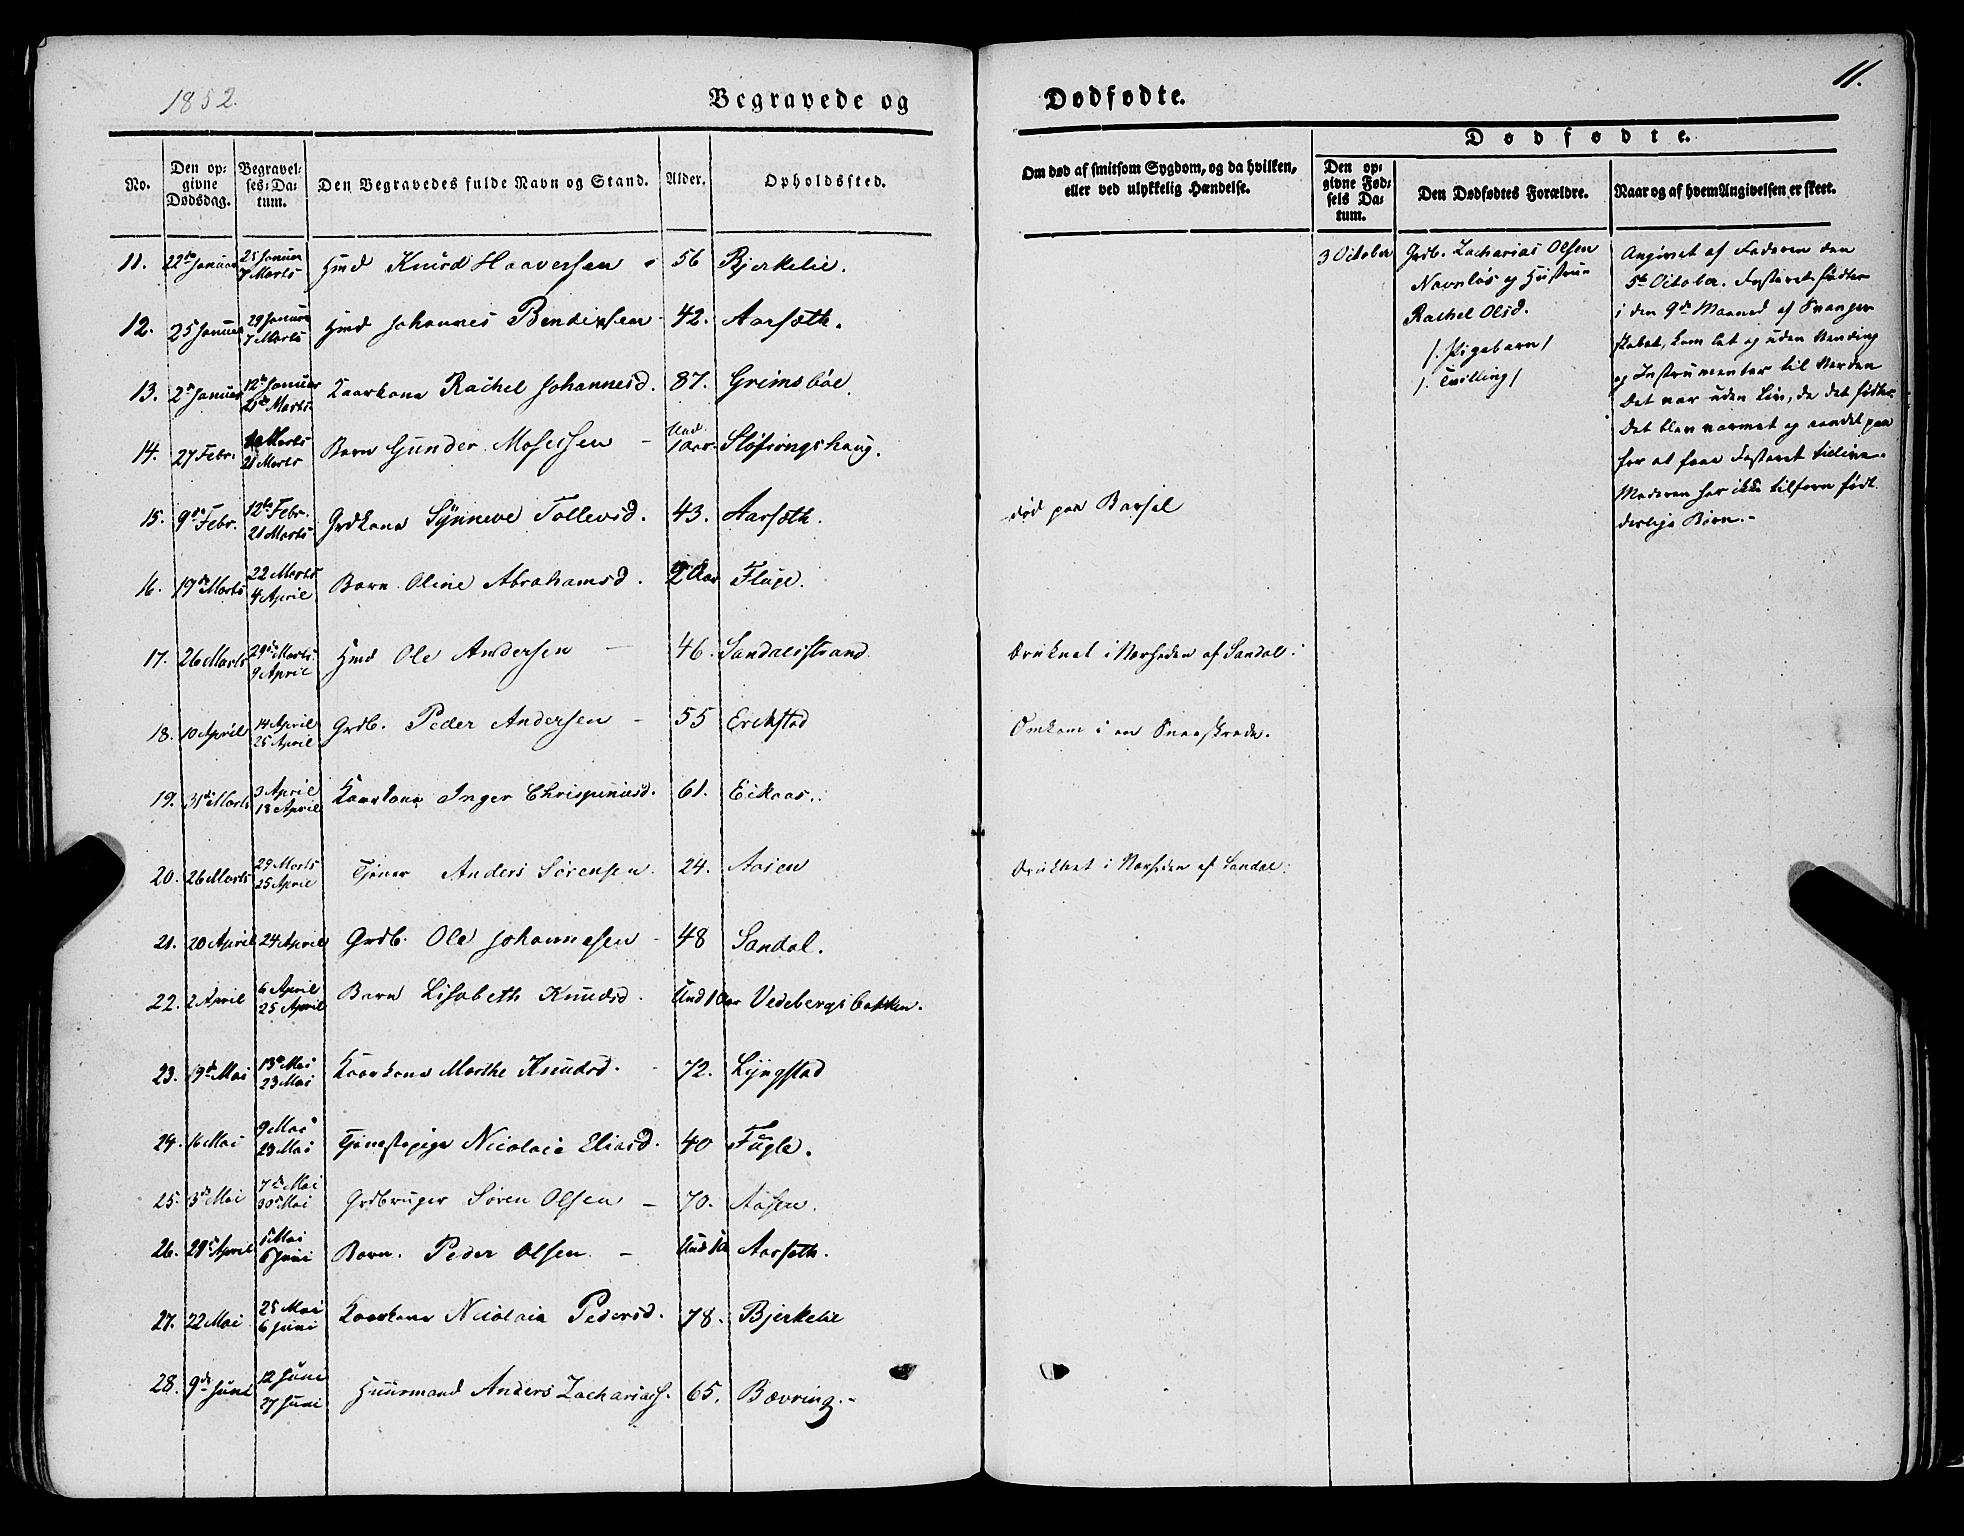 1852.
Begravede og
Dødfødte.
11.
No.
Den op-
givne
Dødsdag.
Begravel-
ses-Da-
tum.
Den Begravedes fulde Navn og Stand.
Alder.
Opholdssted.
Om død af smitsom Sygdom, og da hvilken,
eller ved ulykkelig Hændelse.
Dødfødte.
Den op-
givne Fød-
sels Da-
tum.
Den Dødfødtes Forældre.
Naar og af hvem Angivelsen er skeet.
11. 22de Januar 25 Januar 7 Marts Hmd Knud Haaversen 56 Bjerkelie.
12. 25 Januar 29 Januar 7 Marts Hmd Johannes Bendixsen 42. Aarsæth.
13. 2de Januar 12te Januar 21de Marts Kaarkone Rachel Johannesd. 87. Grimsbøe.
14. 27 Febr. Marts 21 Marts Barn Gunder Mosessen Und. 1 aar. Støfringshaug.
15. 9de Febr. 12te Febr. 21 Marts Grdkone Synneve Tollevsd. 43. Aarsæth. død paa Barsel
16. 19de Marts 22 Marts 4 April Barn Oline Abrahamsd. 2 Aar Fluge.
17. 26 Marts 29de Marts 9 April Hmd Ole Andersen 46. Sandalsstrand Druknet i Nærheden af Sandal.
18. 10 April 14 April 25 April Grdb. Peder Andersen 55 Erikstad Omkom i en Sneeskrede.
19. 31de Marts 3 April 18 April Kaarkone Inger Chrispinusd. 61. Eikaas.
20. 26 Marts 29 Marts 25 April Tjener Anders Sørensen. 24. Aasen Druknet i Nærheden af Sandal.
21. 20 April 24 April Grdb. Ole Johannesen 48 Sandal.
22. 2 April 6 April 25 April Barn Lisabeth Knudsd. Und 1 aar Vedebergsbakken.
23. 19de Mai 13de Mai 23 Mai Kaarkone Marthe Knudsd. 72. Lyngstad
24. 16 Mai 9 Mai 23 Mai Tjenestepige Nicolaia Eliasd. 40 Fugle.
25. 3de Mai 7de Mai 30 Mai Grdbruger Søren Olsen 70. Aasen.
26. 28 April 5 Mai 6 Juni Barn. Peder Olsen. Und 1a Aarsæth.
27. 22 Mai 25 Mai 6 Juni Kaarkone Nicolaia Pedersd. 78. Bjerkelie
28. 9de Juni 12 Juni 27 Juni Huusmand Anders Zachariass. 65. Bævring.
3 October
Grdb. Zacharias Olsen
Navnløs og Hustrue
Rachel Olsd.
/: Pigebarn /
/: Tvilling /
Angivet af Faderen den
5te October. Fosteret fødtes
i den 9de Maaned af Svanger-
skabet, kom let og uden Vending
og Instrumenter til Verden
Det var uden Liv, da det fødtes.
Det blev varmet og aandet paa
for at faae Fosteret tillive.
Moderen har ikke tilforn født
deslige Børn.